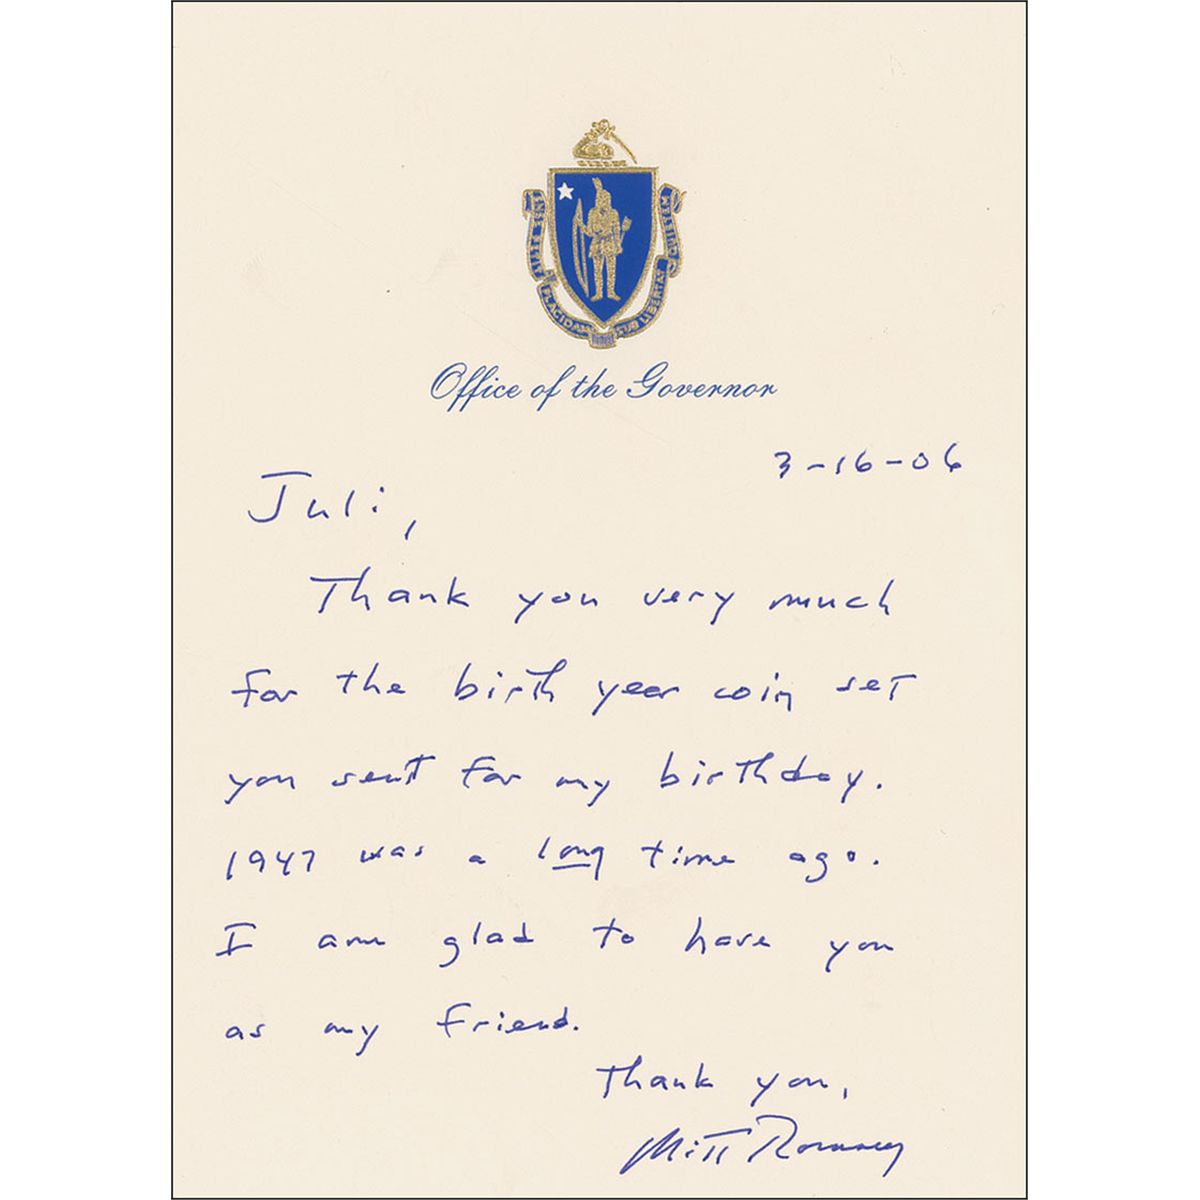 ENSE PETIT PLACIDAM SUB LIBERTATE QUIETEM
Office of the Governor
3-16-06
Juli,
Thank you very much
for the birth year coin set
you sent for my birthday.
1947 was a long time ago.
I am glad to have you
as my friend.
Thank you,
Mitt Romney